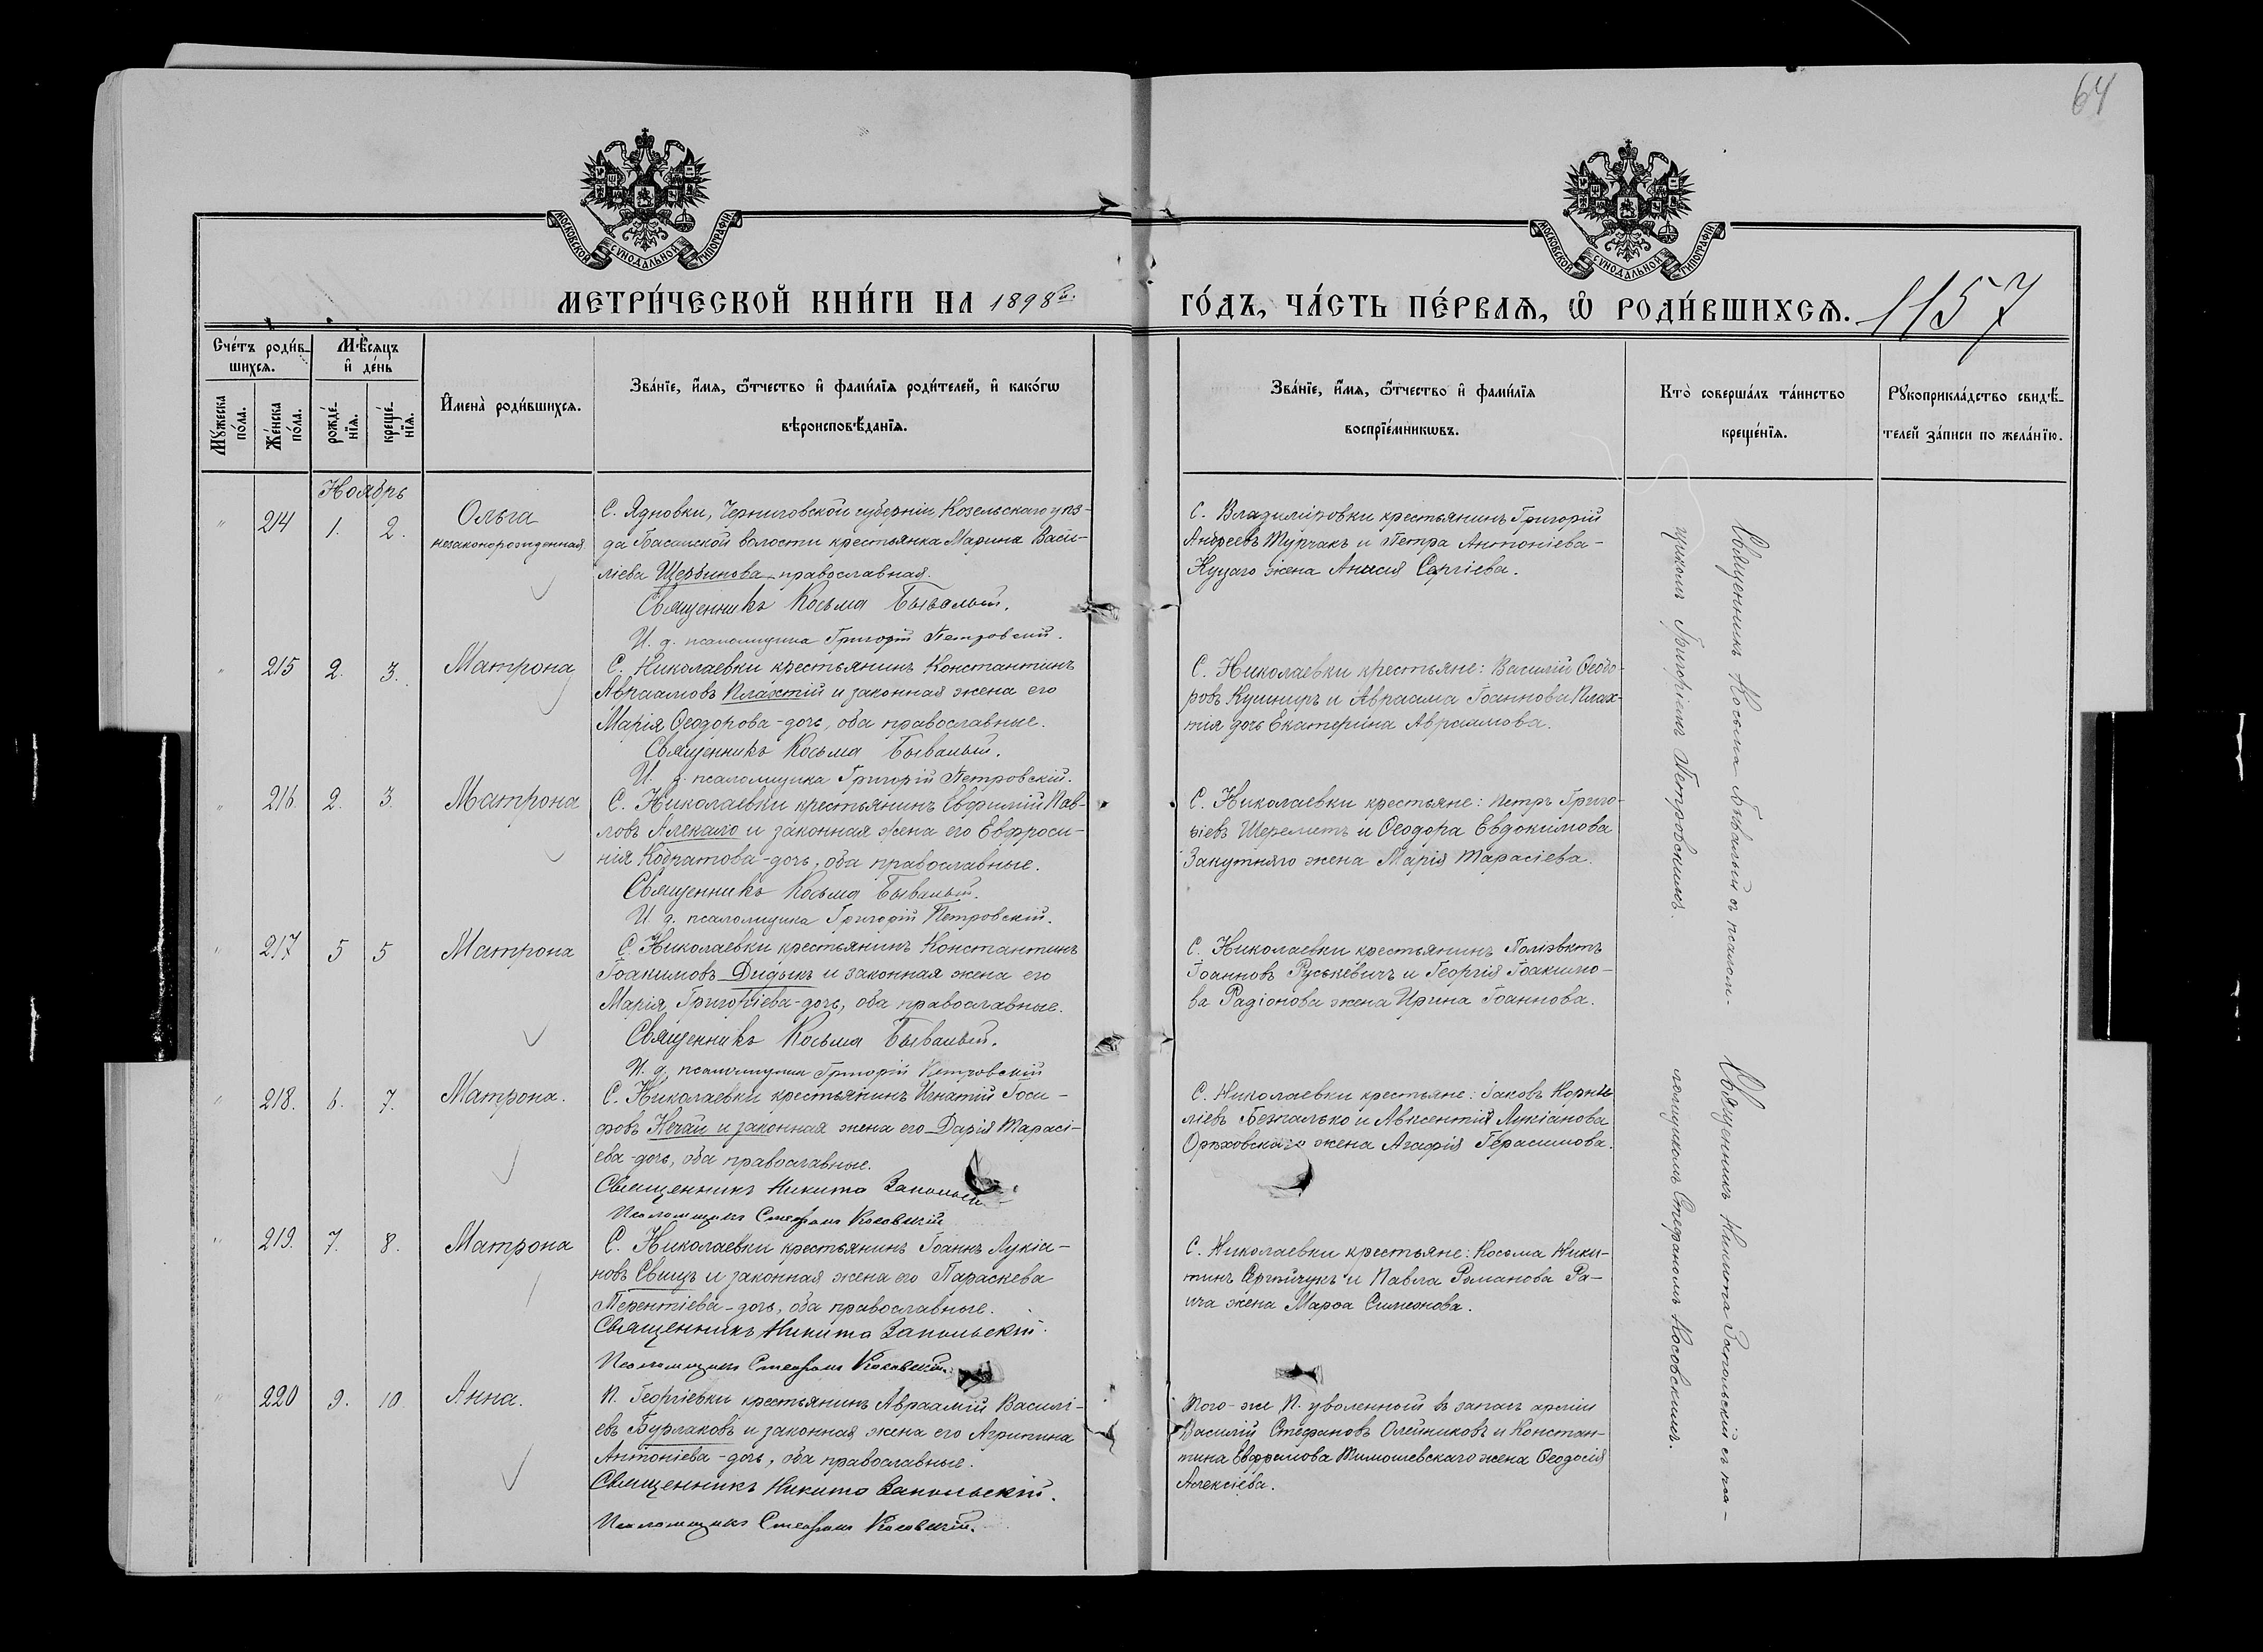 64
МОСКОВСКОЙ СѴНОДАЛЬНОЙ ТИПОГРАФІИ
МОСКОВСКОЙ СѴНОДАЛЬНОЙ ТИПОГРАФІИ
МЕТРИ́ЧЕСКОЙ КНИ́ГИ НА 1898 й.
ГО́ДЪ, ЧА́СТЬ ПЕ́РВАѦ, Ѡ҆ РОДИ́ВШИХСѦ. 1157
Сче́тъ роди́в-
шихся.
Мꙋ́жеска по́ла.
Же́нска по́ла.
Мѣ́сяцъ и҆ де́нь
рожде́-нїѧ.
креще́-нїѧ.
И҆мена̀ роди́вшихсѧ.
Зва́нїе, и҆́мѧ, ѻ҆́тчество и҆ фами́лїѧ роди́телей, и҆ како́гѡ
вѣроисповѣ́данїѧ.
Зва́нїе, и҆́мѧ, ѻ҆́тчество и҆ фами́лїѧ
воспрїе́мникѡвъ.
Кто̀ соверша́лъ та́инство
креще́нїѧ.
Рꙋкоприкла́дство свидѣ́-
телей за́писи по жела́нїю.
Ноябрь
" 214 1. 2. Ольга
незаконорожденная
С. Ядновки, Черниговской губерніи Козельскаго уѣз-
да Басанской волости крестьянка Марина Васи-
ліева Щербинова - православная.
Священникъ Косьма Бывалый.
И. д. псаломщика Григорій Петровскій.
С. Владиміровки крестьянинъ Григорій
Андреевъ Турчакъ и Петра Антоніева-
Куцаго жена Анисія Сергіева.
" 215 2. 3. Матрона
С. Николаевки крестьянинъ Константинъ
Авраамовъ Плахтій и законная жена его
Марія Ѳеодорова-дочь, оба православные.
Священникъ Косьма Бывалый.
И. д. псаломщика Григорій Петровскій.
С. Николаевки крестьяне: Василій Ѳеодо-
ровъ Кушниръ и Авраама Іоаннова Плах-
тія дочь Екатерина Авраамова.
" 216. 2. 3. Матрона
С. Николаевки крестьянинъ Евфимій Пав-
ловъ Алекало и законная жена его Евфроси-
нія Кодратова-дочь, оба православные.
Священникъ Косьма Бывалый.
И. д. псаломщика Григорій Петровскій.
С. Николаевки крестьяне: Петръ Григо-
ріевъ Шереметъ и Ѳеодора Евдокимова
Закутняго жена Марія Тарасіева.
" 217 5 5 Матрона
С. Николаевки крестьянинъ Константинъ
Іоакимовъ Дидыкъ и законная жена его
Марія Григоріева-дочь, оба православные.
Священникъ Косьма Бывалый.
И. д. псаломщика Григорій Петровскій
С. Николаевки крестьянинъ Поліэвктъ
Іоанновъ Руськевичъ и Георгія Іоакимо-
ва Радіонова жена Ирина Іоаннова.
" 218. 6. 7. Матрона.
С. Николаевки крестьянинъ Игнатій Іоси-
фовъ Нечай и законная жена его Дарія Тарасі-
ева-дочь, оба православные.
Священникъ Никита Запольскій
Псаломщикъ Стефанъ Косовскій
С. Николаевки крестьяне: Іаковъ Корни-
ліевъ Безпалько и Авксентія Лукіанова
Орѣховскаго жена Агафія Герасимова.
" 219. 7. 8. Матрона
С. Николаевки крестьянинъ Іоаннъ Лукіа-
новъ Свищъ и законная жена его Параскева
Терентіева-дочь, оба православные.
Священникъ Никита Запольскій.
Псаломщикъ Стефанъ Косовскій.
С. Николаевки крестьяне: Косьма Ники-
тинъ Сергійчукъ и Павла Романова Ра-
ича жена Марѳа Симеонова.
" 220 9. 10 Анна.
П. Георгіевки крестьянинъ Авраамій Василі-
евъ Бурлаковъ и законная жена его Агрипина
Антоніева-дочь, оба православные.
Священникъ Никита Запольскій.
Псаломщикъ Стефанъ Косовскій.
Того-же П. уволенный въ запасъ арміи
Василій Стефановъ Олейниковъ и Констан-
тина Евфремова Тимошевскаго жена Ѳеодосія
Алексіева.
Священникъ Косьма Бывалый съ псалом-
щикомъ Григоріемъ Петровскимъ.
Священникъ Никита Запольскій съ пса-
ломщикомъ Стефаномъ Косовскимъ.